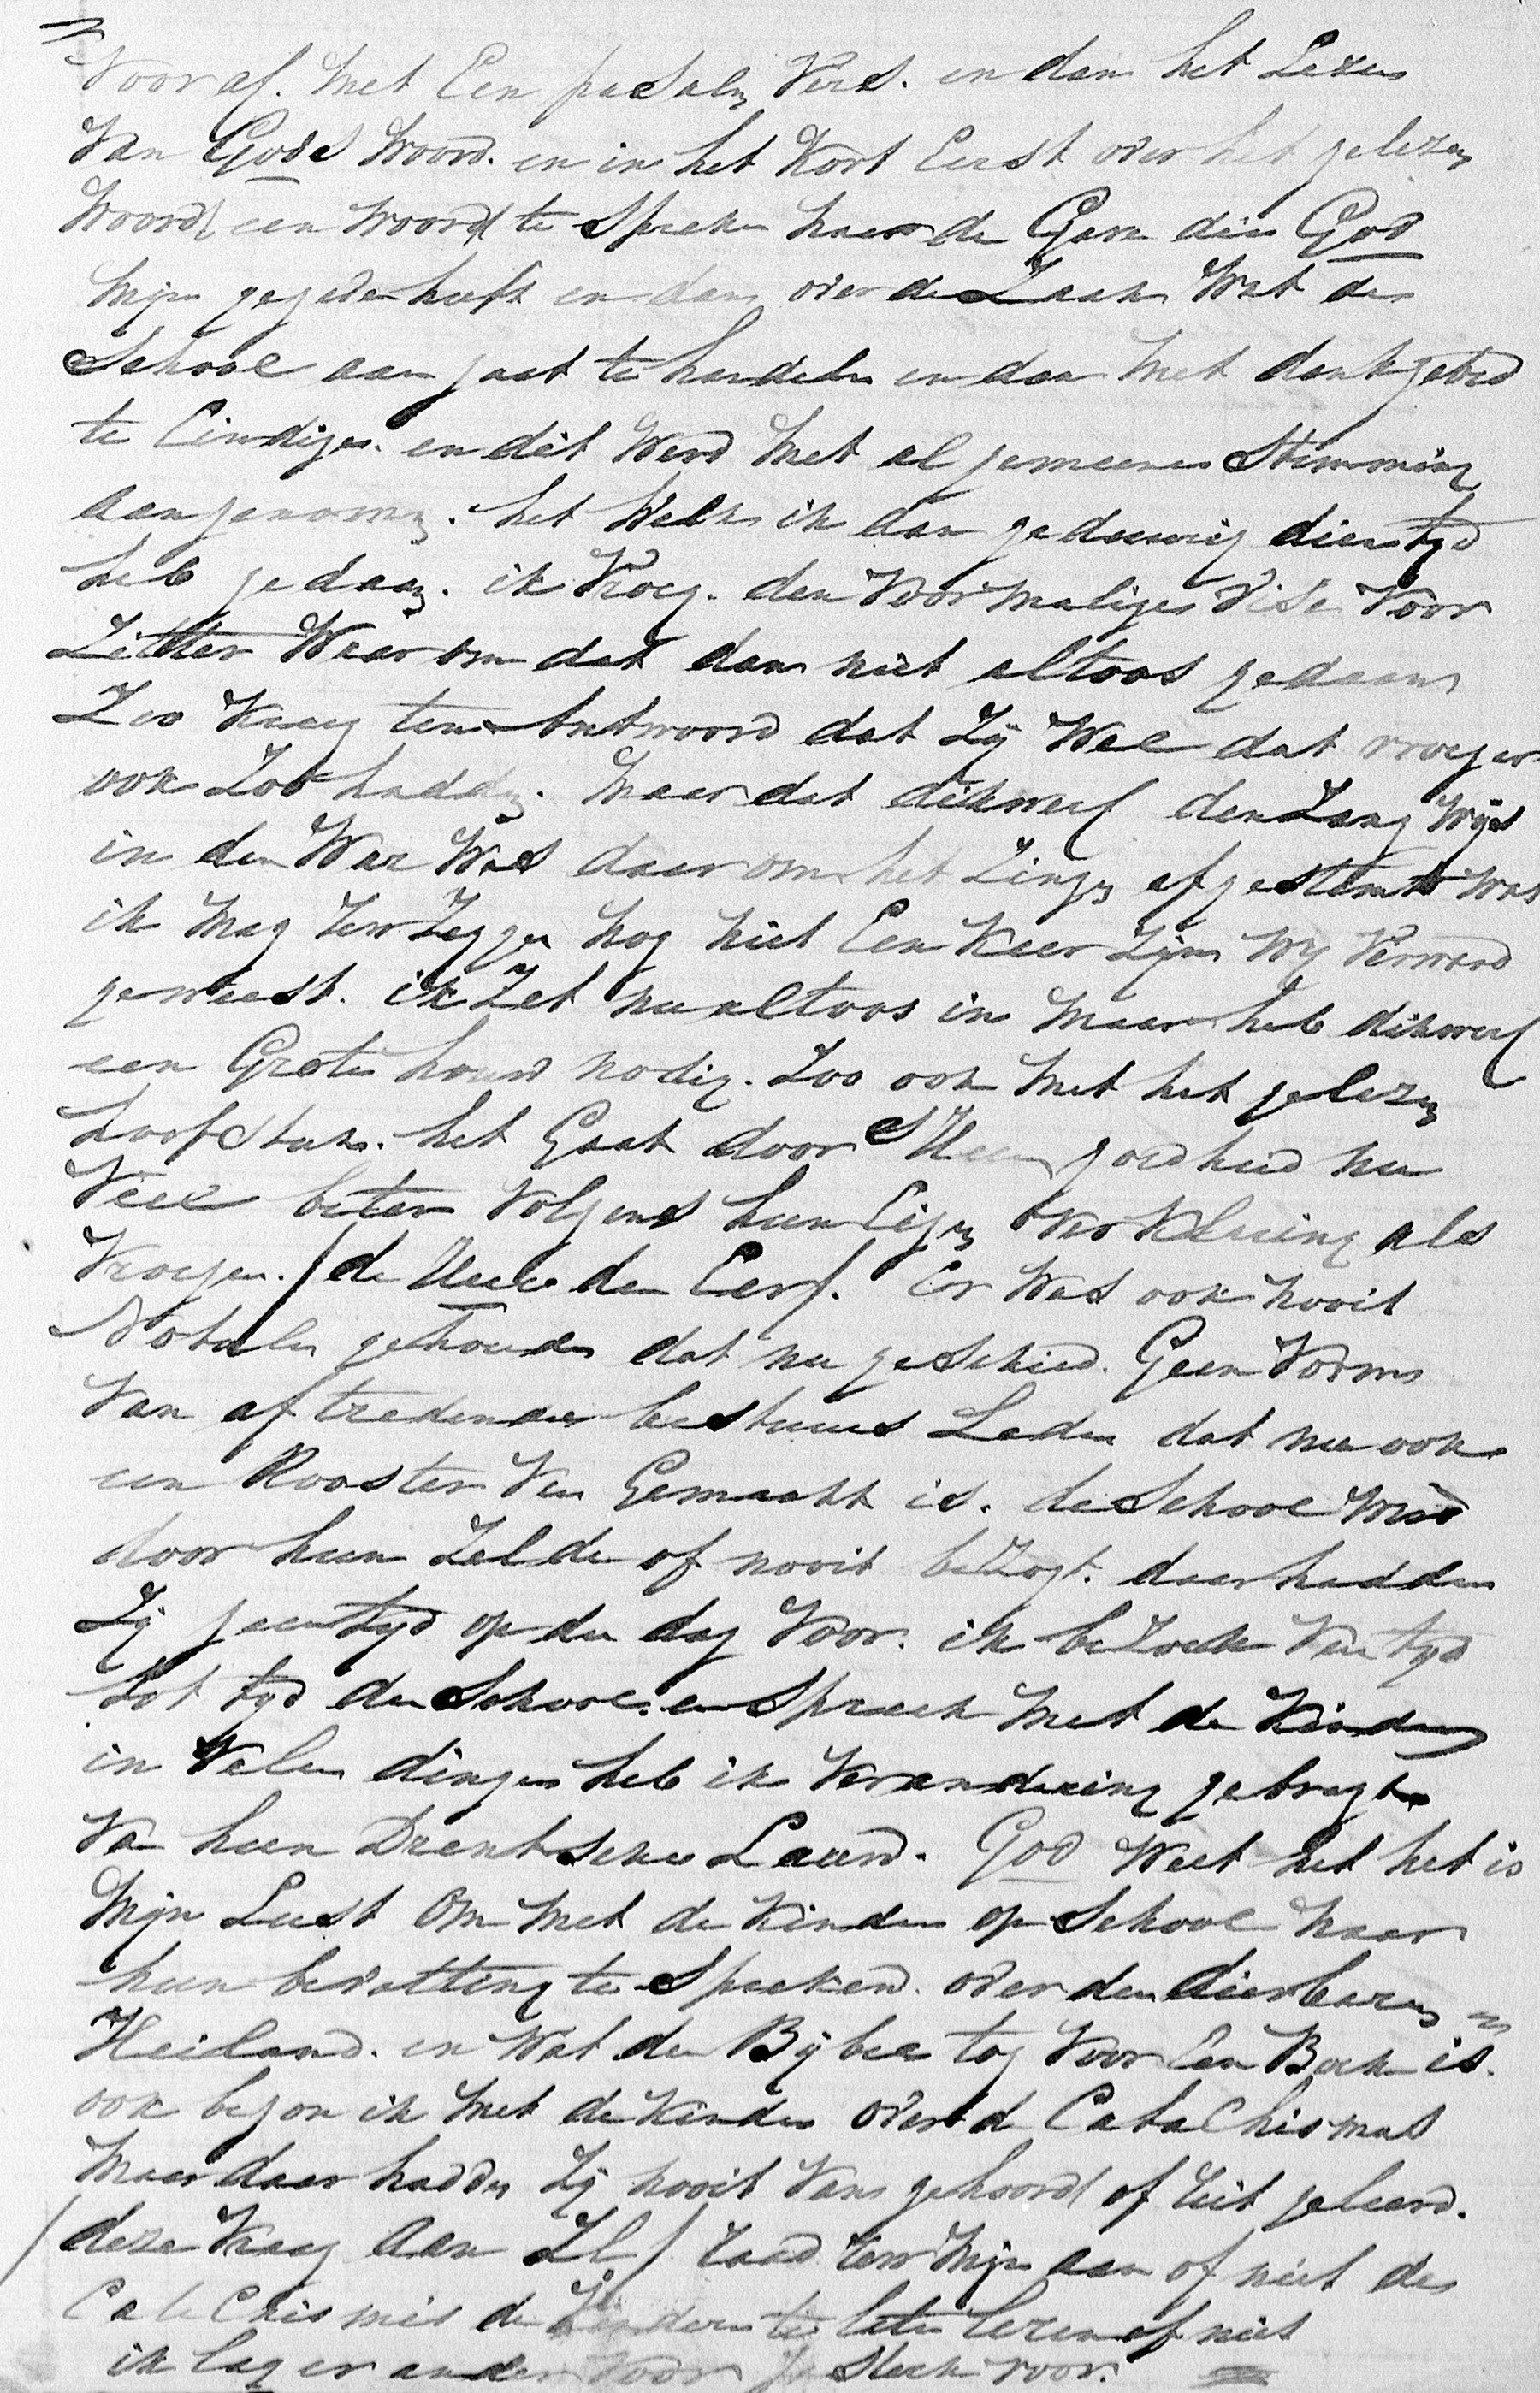 Vooraf. met Een psalm Vers. en dan het Lezen
Van Gods Woord. en in het Kort Eerst over het gelezen
Woord een woord te spreken naar de Gave die God
mijn gegeven heeft en dan over de Zaak Wat de
Schoole aan gaat te handelen en dan met dankgebed
te Eindigen. en dit Werd met al gemeene Stemming
aangenomen. het Welk ik dan gedeurig dien tyd
heb gedaan. ik Vroeg. den Voormaligen Vise Voor
Zitter Waarom dat dan niet altoos gedaan
Zoo Kreeg ten Antwoord dat Zij Wel dat vroeger
ook Zoo hadden. Maar dat dikwerf den Zang Wijs
in de War Was daarom het Zingen afgestemt was
ik mag Uw Zeggen nog niet Een Keer Zijn wy Verward
geweest. ik Zet nu altoos in maar heb dikwerf
een Grote nodig. Zoo ook met het gelezen
hoofstuk. het Gaat door S'Heeren goedheid nu
Veel beter Volgens hun Eigen Verklaring als
Vroeger. / de Heere de Eer /. Er Was ook nooit
Notulen gehouden dat nu geschied. Geen Vorm
Van aftredende bestuurs Leden dat nu ook
een Rooster Van Gemaakt is. de Schoole werd
door hun Zelde of nooit beZogt. daar hadden
Zij geen tyd op de dag Voor. ik beZoek Van tyd
tot tyd de Schoole. en Spreek met de Kinderen
in Vele dingen heb ik Verandering gebragt
Van hun Drentsche Laard. God Weet het het is
Mijn Lust Om met de Kinders op Schoole naar
hun bevatting te Spreken. over den dierbaren
Heiland. en Wat de Bijbel tog Voor Een Boek is.
ook begon ik met de Kinders over d CataChismas
Maar daar hadden Zij nooit Van gehoord of Uit geleerd.
/ deze Vraag Aan ZE / raad Uw Mijn aan of niet de
CateChismis de Kinderen te leten leren of niet
ik lag er ander Voor steek voor.